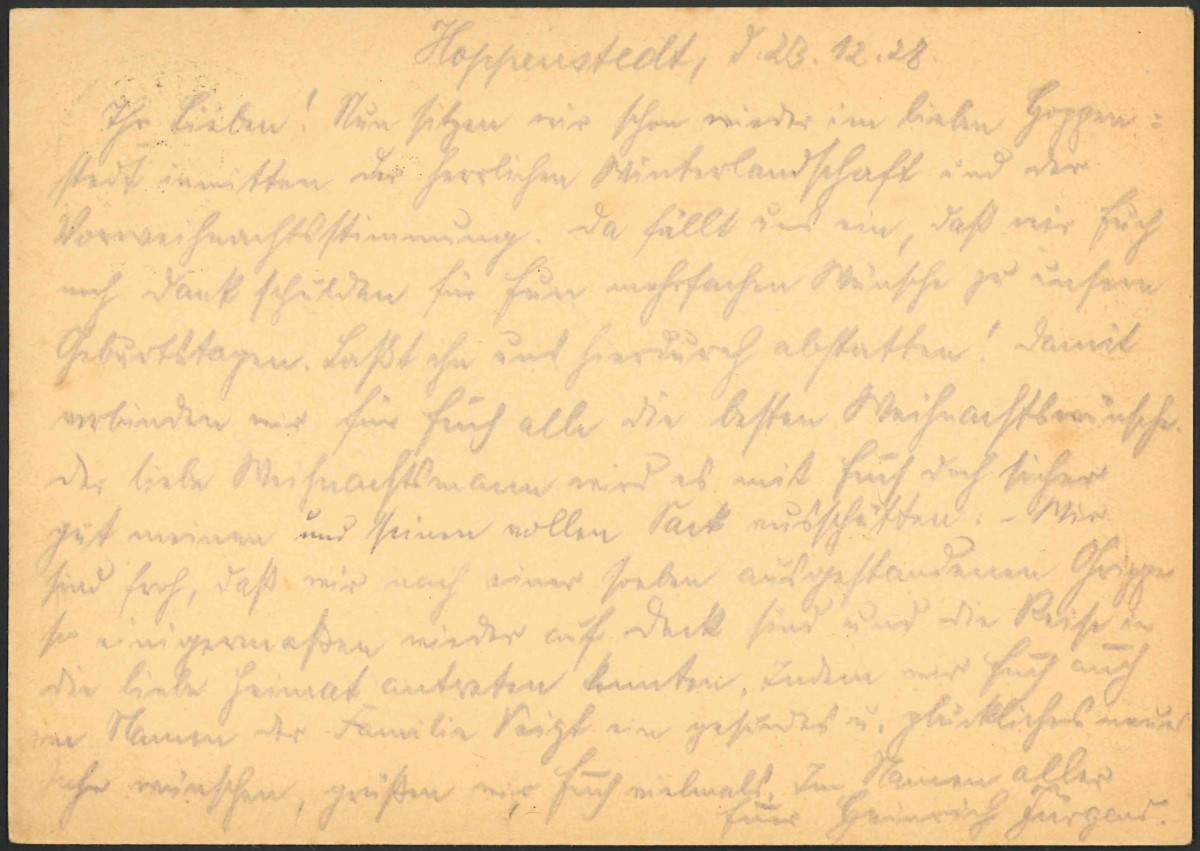 Hoppenstedt, d. 23.12.28.
Ihr Lieben! Nun sitzen wir schon wieder im lieben Hoppen=
stedt inmitten der herrlichen Winterlandschaft und der
Vorweihnachtsstimmung. Da fällt uns ein, daß wir Euch
noch Dank schulden für Eure mehrfachen Wünsche zu unsern
Geburtstagen. Laßt ihn uns hierdurch abstatten! Damit
verbinden wir für Euch alle die besten Weihnachtswünsche.
Der liebe Weihnachtsmann wird es mit Euch doch sicher
gut meinen und seinen vollen Sack ausschütten. - Wir
sind froh, daß wir nach einer soeben ausgestandenen Grippe
so einigermaßen wieder auf Deck sind und die Reise in
die liebe Heimat antreten konnten. Indem wir Euch auch
im Namen der Familie Voigt ein gesundes u. glückliches neues
Jahr wünschen, grüßen wir Euch vielmals. Im Namen aller
Euer Heinrich Jürgens.